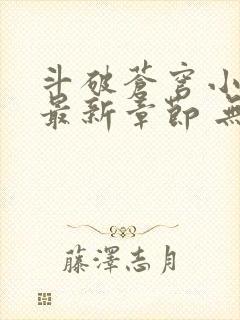 斗破蒼穹小
最新章節 無
藤澤志月